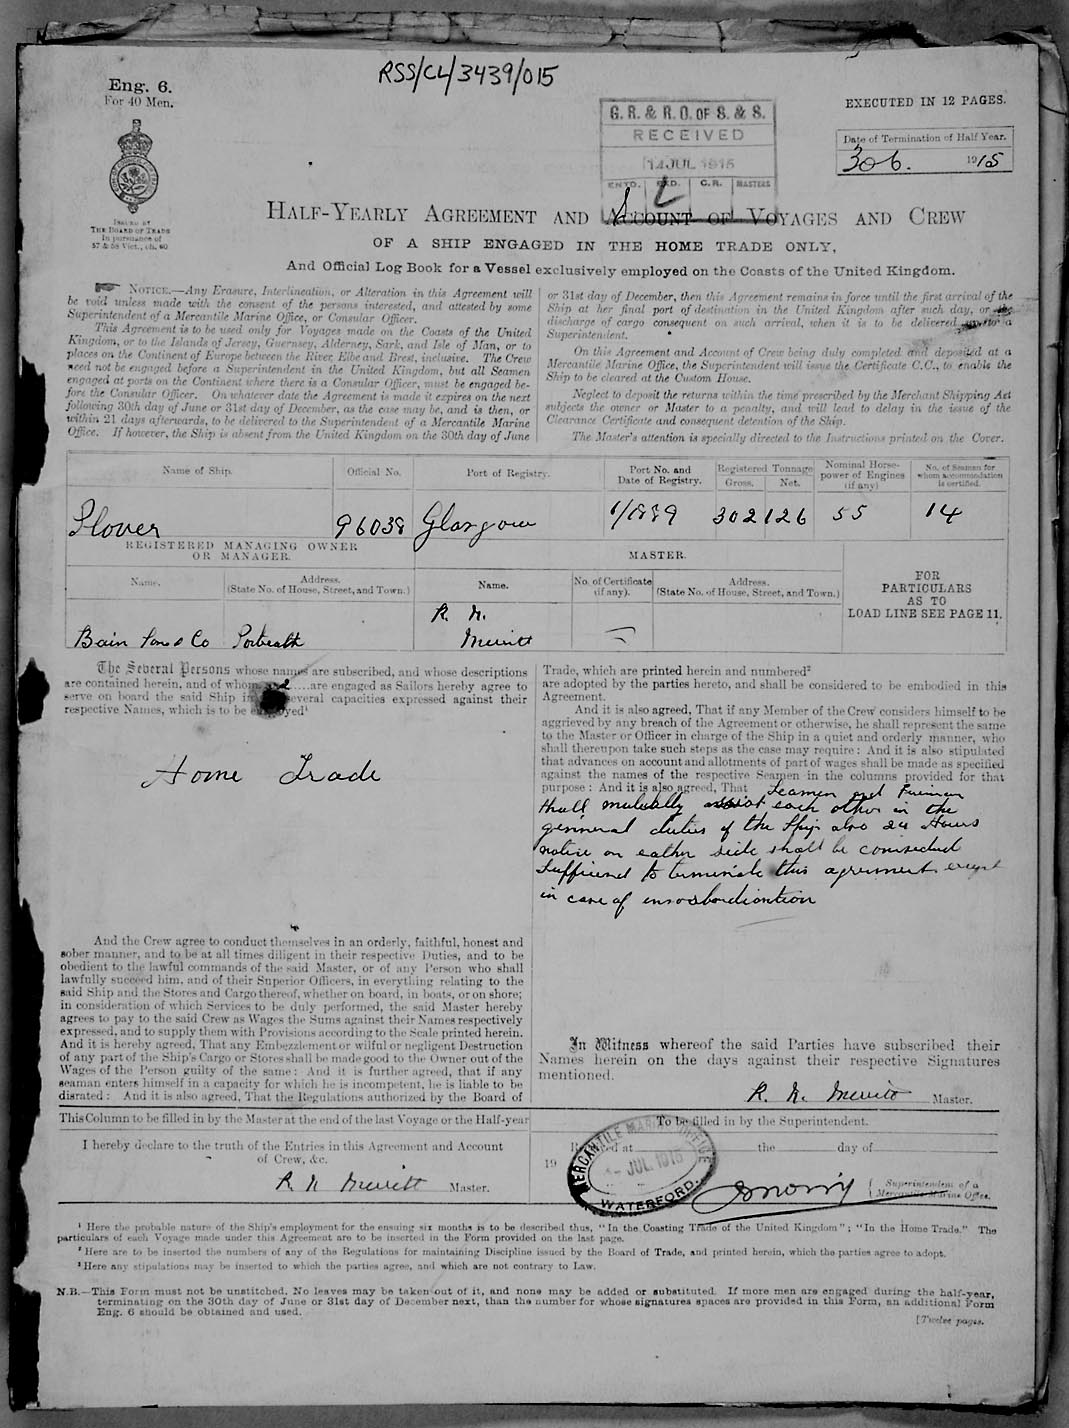 RSS/CL/3439/015
Eng. 6.
For 40 Men.
EXECUTED IN 12 PAGES.
G. R. & R. O. OF S. & S.
RECEIVED
14 JUL 1915
ENTD. EXD. C.R. MASTERS
Date of Termination of Half Year.
30 6. 1915
ISSUED BY
THE BOARD OF TRADE
In pursuance of
57 & 58 Vict., ch. 60
HALF-YEARLY AGREEMENT AND ACCOUNT OF VOYAGES AND CREW
OF A SHIP ENGAGED IN THE HOME TRADE ONLY,
And Official Log Book for a Vessel exclusively employed on the Coasts of the United Kingdom.
NOTICE.—Any Erasure, Interlineation, or Alteration in this Agreement will
be void unless made with the consent of the persons interested, and attested by some
Superintendent of a Mercantile Marine Office, or Consular Officer.
This Agreement is to be used only for Voyages made on the Coasts of the United
Kingdom, or to the Islands of Jersey, Guernsey, Alderney, Sark, and Isle of Man, or to
places on the Continent of Europe between the River Elbe and Brest, inclusive. The Crew
need not be engaged before a Superintendent in the United Kingdom, but all Seamen
engaged at ports on the Continent where there is a Consular Officer, must be engaged be-
fore the Consular Officer. On whatever date the Agreement is made it expires on the next
following 30th day of June or 31st day of December, as the case may be, and is then, or
within 21 days afterwards, to be delivered to the Superintendent of a Mercantile Marine
Office. If however, the Ship is absent from the United Kingdom on the 30th day of June
or 31st day of December, then this Agreement remains in force until the first arrival of the
Ship at her final port of destination in the United Kingdom after such day, or the
discharge of cargo consequent on such arrival, when it is to be delivered up to a
Superintendent.
On this Agreement and Account of Crew being duly completed and deposited at a
Mercantile Marine Office, the Superintendent will issue the Certificate C.C., to enable the
Ship to be cleared at the Custom House.
Neglect to deposit the returns within the time prescribed by the Merchant Shipping Act
subjects the owner or Master to a penalty, and will lead to delay in the issue of the
Clearance Certificate and consequent detention of the Ship.
The Master's attention is specially directed to the Instructions printed on the Cover.
Name of Ship. Official No. Port of Registry. Port No. and Date of Registry. Registered Tonnage Gross. Net. Nominal Horse-power of Engines (if any) No. of Seamen for whom accommodation is certified.
Plover 96038 Glasgow 1/1889 302 126 55 14
REGISTERED MANAGING OWNER
OR MANAGER.
MASTER.
Name. Address. (State No. of House, Street, and Town.) Name. No. of Certificate (if any). Address. (State No. of House, Street, and Town.)
FOR
PARTICULARS
AS TO
LOAD LINE SEE PAGE 11.
Bain Sons & Co Portreath R. N. Merritt
The Several Persons whose names are subscribed, and whose descriptions
are contained herein, and of whom 2 are engaged as Sailors hereby agree to
serve on board the said Ship in several capacities expressed against their
respective Names, which is to be employed¹
Home Trade
And the Crew agree to conduct themselves in an orderly, faithful, honest and
sober manner, and to be at all times diligent in their respective Duties, and to be
obedient to the lawful commands of the said Master, or of any Person who shall
lawfully succeed him, and of their Superior Officers, in everything relating to the
said Ship and the Stores and Cargo thereof, whether on board, in boats, or on shore;
in consideration of which Services to be duly performed, the said Master hereby
agrees to pay to the said Crew as Wages the Sums against their Names respectively
expressed, and to supply them with Provisions according to the Scale printed herein.
And it is hereby agreed, That any Embezzlement or wilful or negligent Destruction
of any part of the Ship's Cargo or Stores shall be made good to the Owner out of the
Wages of the Person guilty of the same: And it is further agreed, that if any
seaman enters himself in a capacity for which he is incompetent, he is liable to be
disrated: And it is also agreed, That the Regulations authorized by the Board of
Trade, which are printed herein and numbered²
are adopted by the parties hereto, and shall be considered to be embodied in this
Agreement.
And it is also agreed, That if any Member of the Crew considers himself to be
aggrieved by any breach of the Agreement or otherwise, he shall represent the same
to the Master or Officer in charge of the Ship in a quiet and orderly manner, who
shall thereupon take such steps as the case may require: And it is also stipulated
that advances on account and allotments of part of wages shall be made as specified
against the names of the respective Seamen in the columns provided for that
purpose: And it is also agreed, That Seamen and Fireman
shall mutually assist each other in the
genineral duties of the Ship also 24 Hours
notice on eather side shall be considerd
sufficiend to terminate this agreement except
in case of insosbordiontion
In Witness whereof the said Parties have subscribed their
Names herein on the days against their respective Signatures
mentioned.
R. N. Merritt Master.
This Column to be filled in by the Master at the end of the last Voyage or the Half-year
I hereby declare to the truth of the Entries in this Agreement and Account
of Crew, &c.
R N Merritt Master.
To be filled in by the Superintendent.
19 at the day of
MERCANTILE MARINE OFFICE
JUL 1915
WATERFORD.
Superintendent of a
Mercantile Marine Office.
¹ Here the probable nature of the Ship's employment for the ensuing six months is to be described thus, "In the Coasting Trade of the United Kingdom"; "In the Home Trade." The
particulars of each Voyage made under this Agreement are to be inserted in the Form provided on the last page.
² Here are to be inserted the numbers of any of the Regulations for maintaining Discipline issued by the Board of Trade, and printed herein, which the parties agree to adopt.
³ Here any stipulations may be inserted to which the parties agree, and which are not contrary to Law.
N.B.—This Form must not be unstitched. No leaves may be taken out of it, and none may be added or substituted. If more men are engaged during the half-year,
terminating on the 30th day of June or 31st day of December next, than the number for whose signatures spaces are provided in this Form, an additional Form
Eng. 6 should be obtained and used.
[Twelve pages.